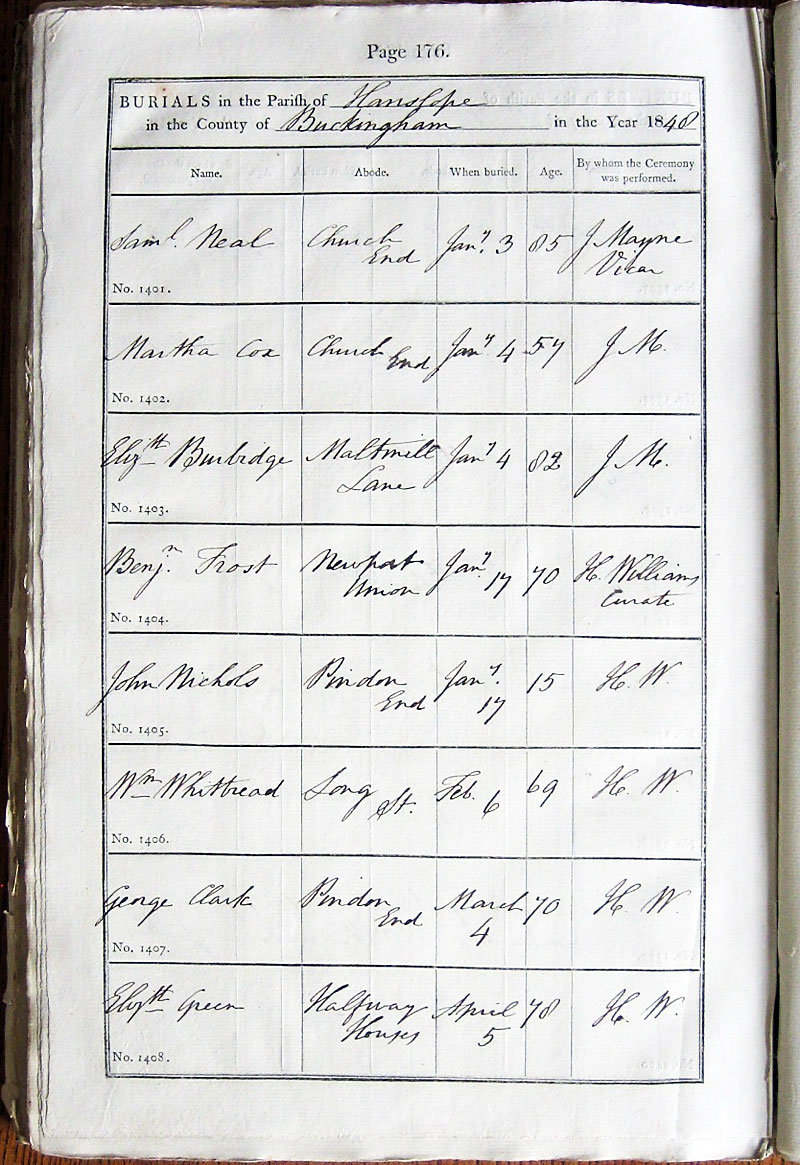 Page 176.
BURIALS in the Parish of Hanslope
in the County of Buckingham in the Year 1848
Name. Abode. When buried. Age. By whom the Ceremony was performed.
Saml. Neal Church End Jany. 3 85 J Mayne Vicar
No. 1401.
Martha Cox Church End Jany 4 57 J. M.
No. 1402.
Elizth Burbidge Maltmill Lane Jany 4 82 J. M.
No. 1403.
Benjn. Frost Newport Union Jany. 17 70 H. Williams Curate
No. 1404.
John Nichols Pindon End Jany. 17 15 H. W.
No. 1405.
Wm Whitbread Long St. Feb. 6 69 H. W.
No. 1406.
George Clark Pindon End March 4 70 H. W.
No. 1407.
Elizth Green Halfway Houses April 5 78 H. W.
No. 1408.